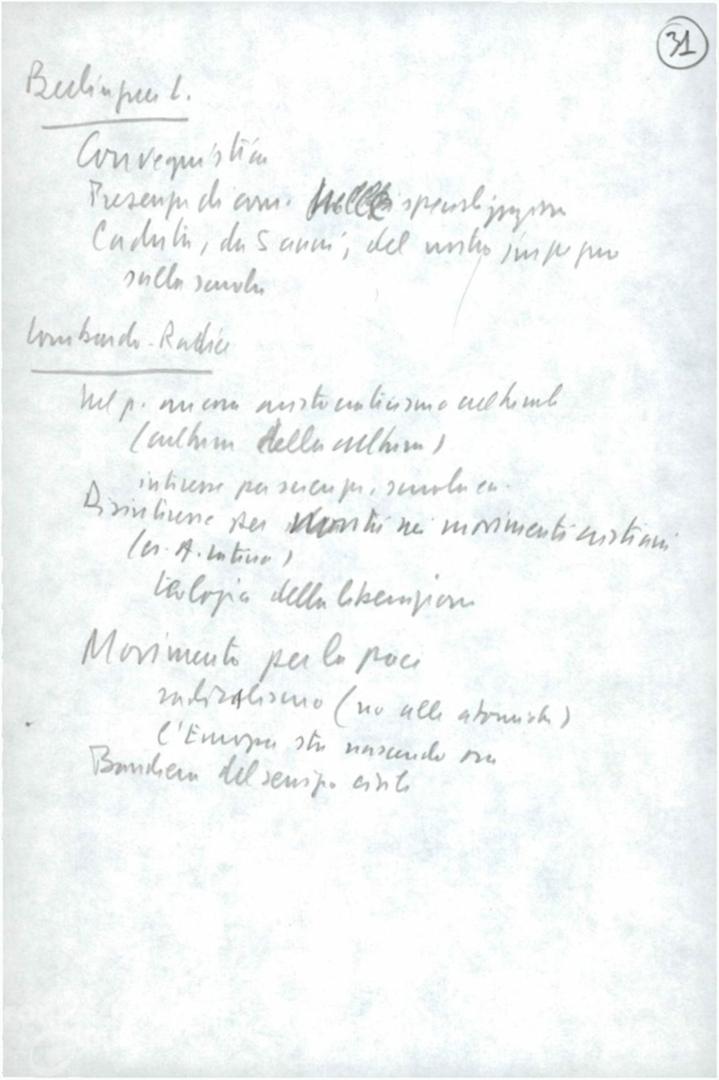 31
Berlinguer L.
Convegnistica
Presenza di com. nelle specializzazioni
Caduta, da 5 anni, del nostro impegno
sulla scuola
Lombardo-Radice
Nel p. ancora aristocraticismo culturale
(cultura della cultura)
interesse per scienza, scuola ecc.
Disinteresse per novità nei movimenti cristiani
(es. A. Latina)
teologia della liberazione
Movimento per la pace
radicalismo (no alle atomiche)
l'Europa sta nascendo ora
Bandiera del servizio civile